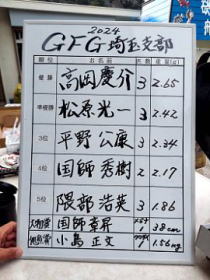 2024
GFG埼玉支部
順位 お名前 匹数 重量(g)
優勝 高岡慶介 3 2.65
準優勝 松原光一 3 2.42
3位 平野公康 3 2.34
4位 国師秀樹 2 2.17
5位 隈部浩英 3 1.86
大物賞 国師章昇 1 38cm
他魚賞 小島正文 1 1.56kg